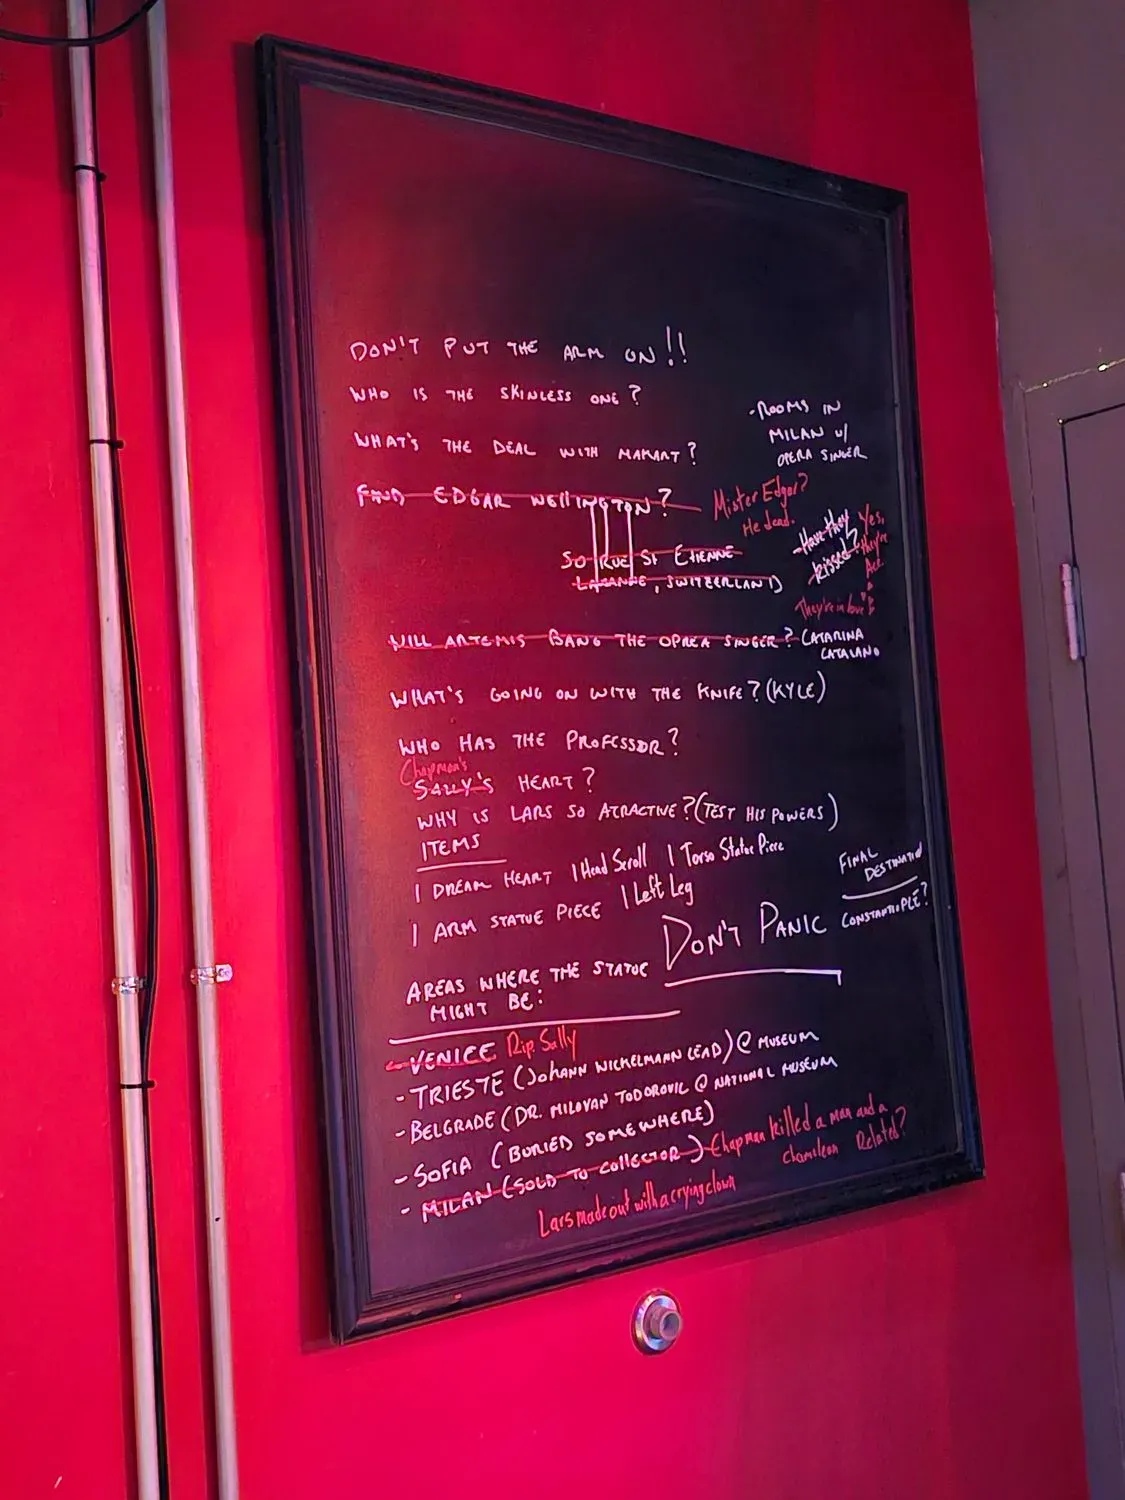 DON'T PUT THE ARM ON!!
WHO IS THE SKINLESS ONE?
-ROOMS IN
MILAN W/
OPERA SINGER
WHAT'S THE DEAL WITH MAKART?
FIND EDGAR WELLINGTON?
Mister Edgar?
He dead.
-Have they
kissed?
Yes,
they're
Ace.
They're in love!
SO RUE St ETIENNE
LASANNE, SWITZERLAND
WILL ARTEMIS BANG THE OPREA SINGER?
CATARINA
CATALANO
WHAT'S GOING ON WITH THE KNIFE? (KYLE)
WHO HAS THE PROFESSOR?
Chapman's
SALLY'S HEART?
WHY IS LARS SO ATRACTIVE? (TEST HIS POWERS)
ITEMS
1 DREAM HEART 1 Head Scroll 1 Torso Statue Piece
1 ARM STATUE PIECE 1 Left Leg
FINAL
DESTINATION
CONSTANTIOPLE?
DON'T PANIC
AREAS WHERE THE STATUE
MIGHT BE:
-VENICE Rip. Sally
-TRIESTE (JOHANN WICKELMANN LEAD) @ MUSEUM
-BELGRADE (DR. MILOVAN TODOROVIC @ NATIONAL MUSEUM
-SOFIA (BURIED SOMEWHERE)
- MILAN (SOLD TO COLLECTOR)
Chapman killed a man and a
chameleon Related?
Lars made out with a crying clown